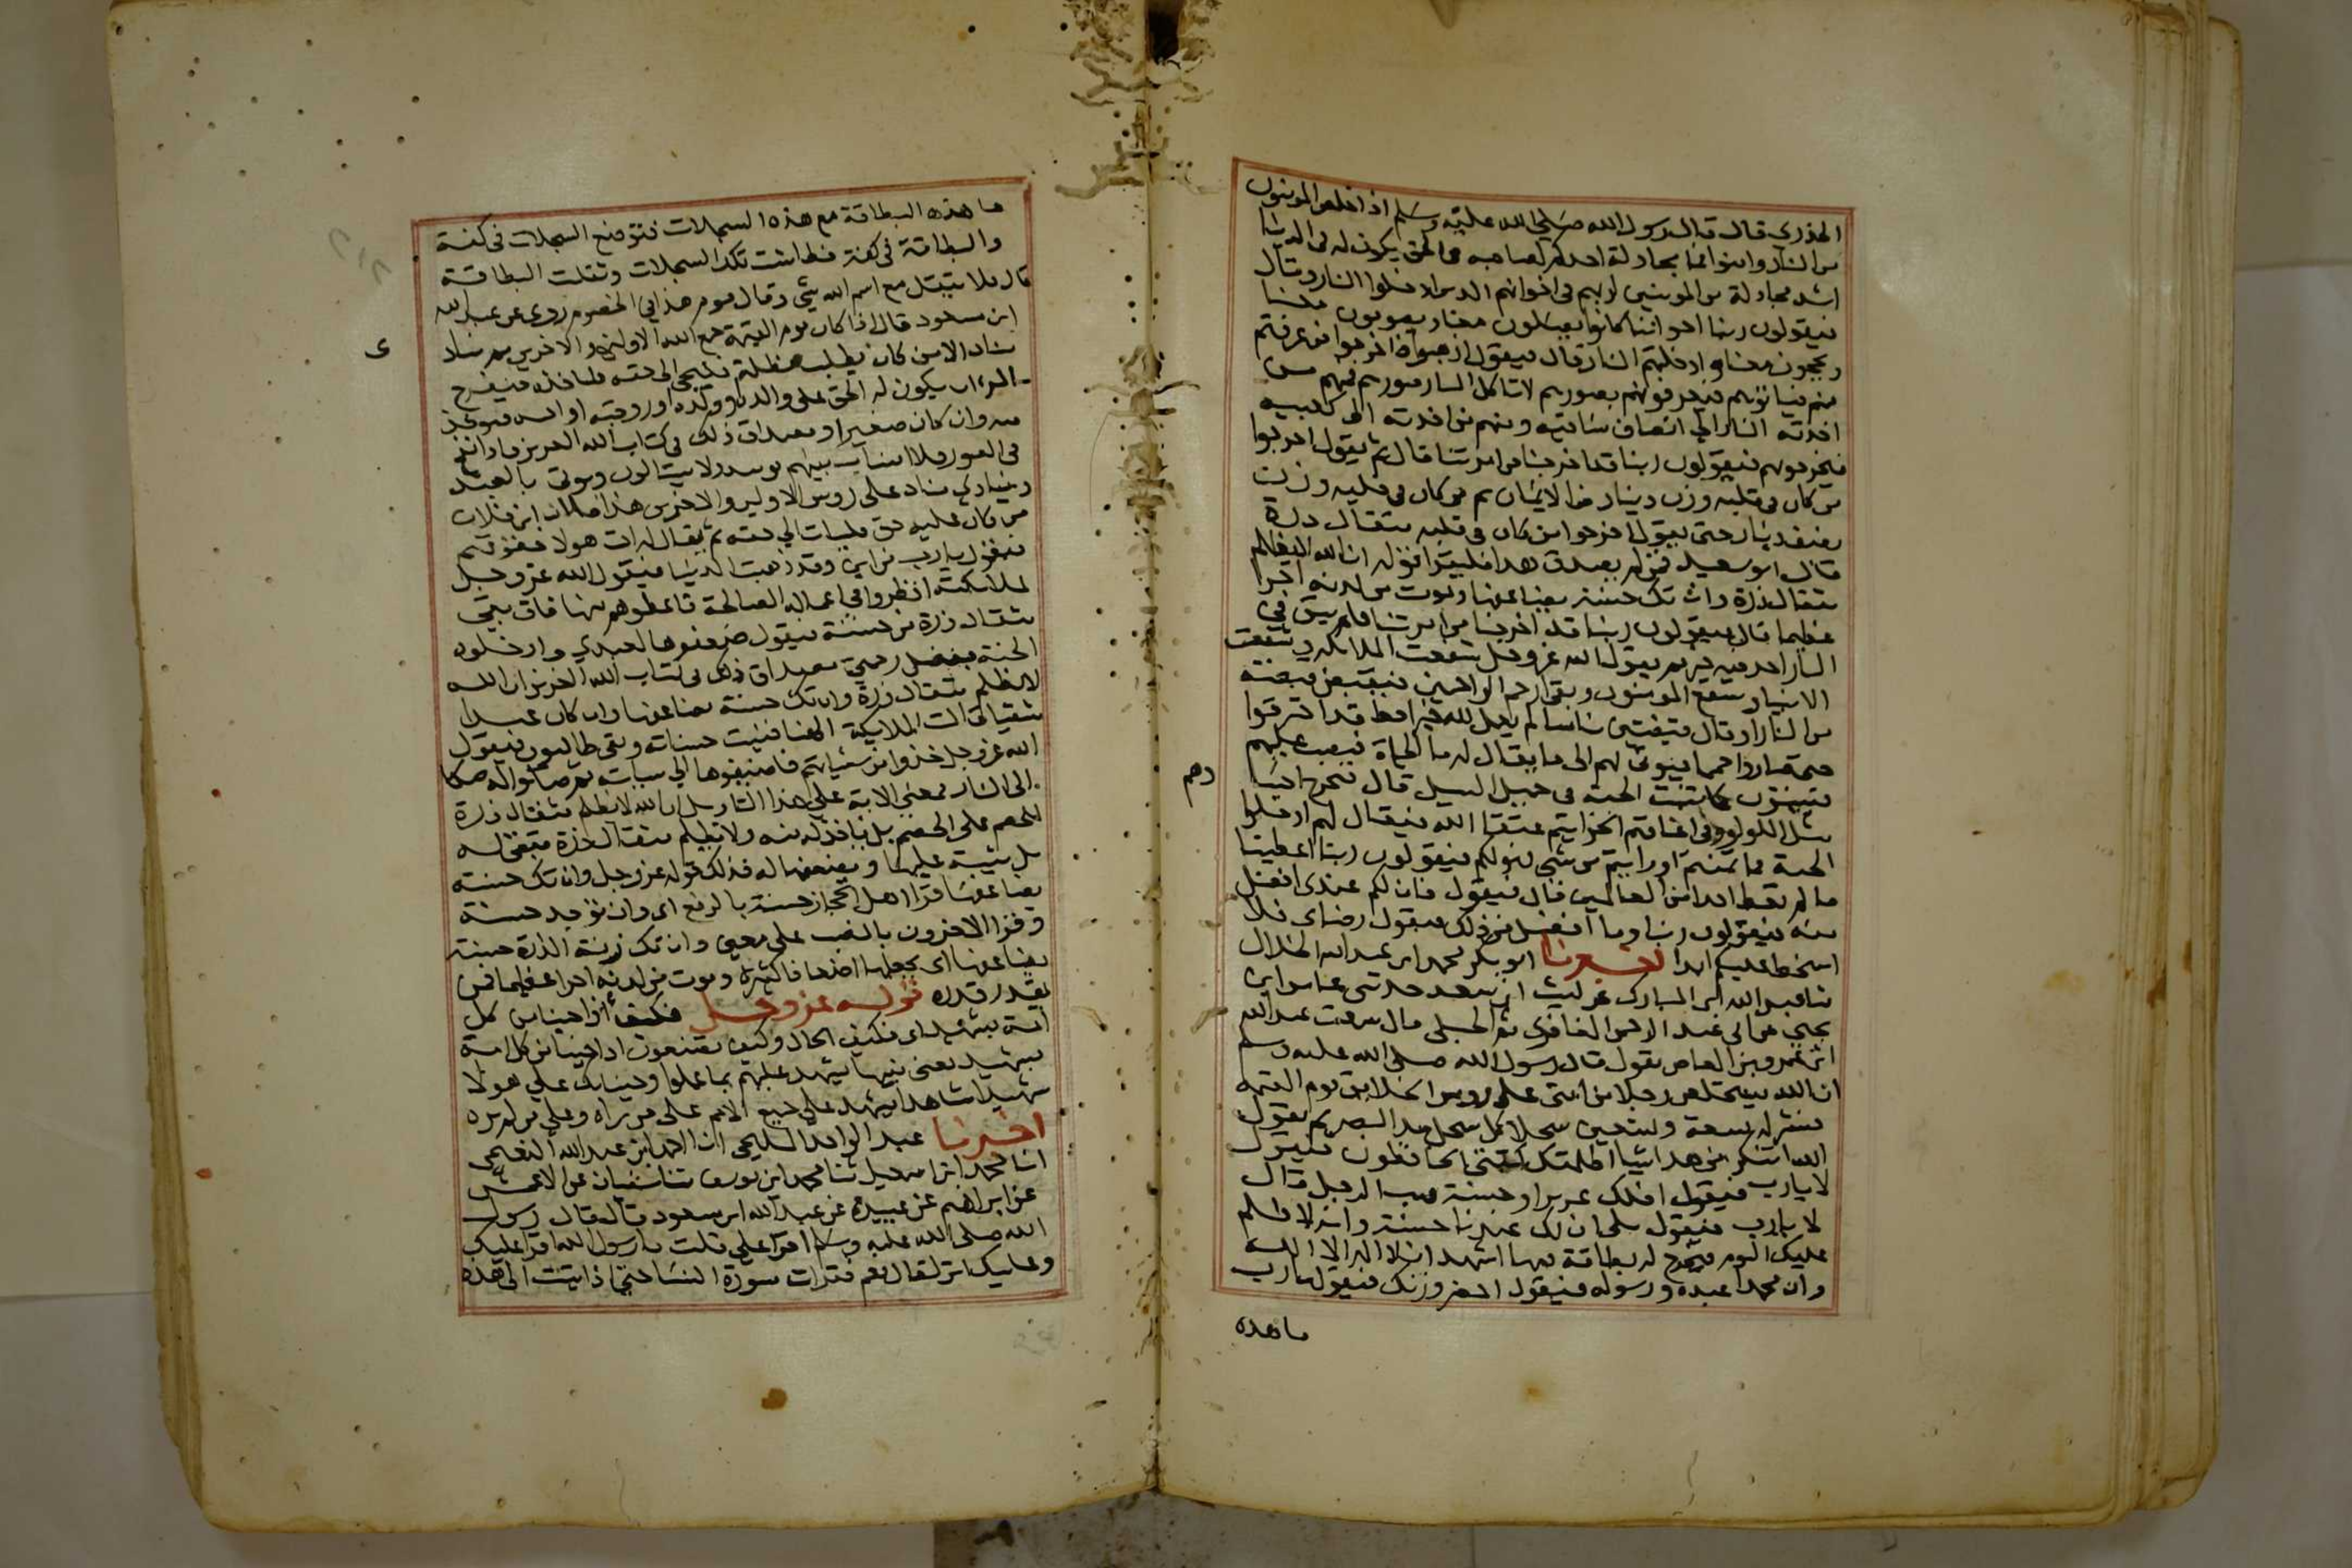 الخدري قال قال رسول الله صلى الله عليه وسلم اذا خلص المومنون
من النار وامنوا فما مجادلة احدكم لصاحبه في الحق يكون له في الدنيا
اشد مجادلة من المومنين لربهم في اخوانهم الذين ادخلوا النار وقال
فيقولون ربنا اخواننا كانوا يصلون معنا ويصومون معنا
ويحجون معنا فادخلتهم النار قال فيقول اذهبوا فاخرجوا من عرفتم
منهم فياتونهم فيعرفونهم بصورهم لا تاكل النار صورهم فمنهم من
اخذته النار الى انصاف ساقيه ومنهم من اخذته الى كعبيه
فيخرجونهم فيقولون ربنا قد اخرجنا من امرتنا قال ثم يقول اخرجوا
من كان في قلبه وزن دينار من الايمان ثم من كان في قلبه وزن
نصف دينار حتى يقول اخرجوا من كان في قلبه مثقال ذرة
قال ابو سعيد فمن لم يصدق هذا فليقرا قوله ان الله لا يظلم
مثقال ذرة وان تك حسنة يضاعفها ويوت من لدنه اجرا
عظيما قال فيقولون ربنا قد اخرجنا من امرتنا فلم يبق في
النار احد فيه خير ثم يقول الله عز وجل شفعت الملائكة وشفعت
الانبياء وشفع المومنون وبقي ارحم الراحمين فيقبض قبضة
من النار او قال قبضتين ناسا لم يعملوا لله خيرا قط قد احترقوا
حتى صاروا حمما فيوتى بهم الى ما يقال له ما الحياة فيصب عليهم
فينبتون كما تنبت الحبة في حميل السيل قال فتخرج اجسا
دهم
مثل اللولو في اعناقهم الخواتيم عتقا الله فيقال لهم ادخلوا
الجنة فما تمنيتم او رايتم من شي فهو لكم فيقولون ربنا اعطيتنا
ما لم تعط احدا من العالمين قال فيقول فان لكم عندي افضل
منه فيقولون ربنا وما افضل من ذلك فيقول رضاي فلا
اسخط عليكم ابدا اخبرنا ابو بكر محمد ابن عبد الله الخلال
ثنا عبد الله ابن المبارك عن ليث ابن سعد حدثني عامر ابن
يحيى عن ابي عبد الرحمن المعافري ثم الحبلي قال سمعت عبد الله
ابن عمرو بن العاص يقول قال رسول الله صلى الله عليه وسلم
ان الله سيستخلص رجلا من امتي على روس الخلايق يوم القيمة
فينشر له تسعة وتسعين سجلا كل سجل مد البصر ثم يقول
الله اتنكر من هذا شيا اظلمتك كتبتي الحافظون فيقول
لا يارب فيقول افلك عذر او حسنة فبهت الرجل قال
لا يارب فيقول بلى ان لك عندنا حسنة وانه لا ظلم
عليك اليوم فيخرج له بطاقة فيها اشهد ان لا اله الا الله
وان محمدا عبده ورسوله فيقول احضر وزنك فيقول يارب
ما هذه
ما هذه البطاقة مع هذه السجلات فتوضع السجلات في كفة
والبطاقة في كفة فطاشت تلك السجلات وثقلت البطاقة
قال فلا يثقل مع اسم الله شي وقال قوم هذا في الخصوم روي عن عبد الله
ابن مسعود قال اذا كان يوم القيمة جمع الله الاولين والاخرين ثم ينادي
ى
مناد الا من كان يطلب مظلمة فليجي الى حقه فلياخذه فيفرح
المرء ان يكون له الحق على والده وولده او زوجته او اخيه فيوخذ
منه وان كان صغيرا ومصداق ذلك في كتاب الله العزيز فاذا نفخ
في الصور فلا انساب بينهم يومئذ ولا يتسالون ويوتى بالعبد
وينادي مناد على روس الاولين والاخرين هذا فلان ابن فلان
من كان عليه حق فليات الى حقه ثم يقال له ات هولا حقوقهم
فيقول يارب من اين وقد ذهبت الدنيا فيقول الله عز وجل
لملائكته انظروا في اعماله الصالحة فاعطوهم منها فان بقي
مثقال ذرة من حسنة فيقول ضعفوها لعبدي وادخلوه
الجنة بفضل رحمتي ومصداق ذلك في كتاب الله العزيز ان الله
لا يظلم مثقال ذرة وان تك حسنة يضاعفها وان كان عبدا
شقيا قالت الملايكة الهنا فنيت حسناته وبقي طالبون فيقول
الله عز وجل خذوا من سياتهم فاضيفوها الى سياته ثم صكوا له صكا
الى النار فمعنى الاية على هذا التاويل ان الله لا يظلم مثقال ذرة
للخصم على الخصم بل ياخذ له منه ولا يظلم مثقال ذرة تبقى له
بل يثيبه عليها ويضعفها له فذلك قوله عز وجل وان تك حسنة
يضاعفها قرا اهل الحجاز حسنة بالرفع اي وان توجد حسنة
وقرا الاخرون بالنصب على معنى وان تك زنة الذرة حسنة
يضاعفها اي يجعلها اضعافا كثيرة ويوت من لدنه اجرا عظيما فمن
يقدر قدره قوله عز وجل فكيف اذا جينا من كل
امة بشهيد اي فكيف الحال وكيف يصنعون اذا جينا من كل امة
بشهيد يعني نبيها يشهد عليهم بما عملوا وجينا بك على هولا
شهيدا شاهدا يشهد على جميع الامم على من راه وعلى من لم يره
اخبرنا عبد الواحد المليحي انا احمد ابن عبد الله النعيمي
انا محمد ابن اسمعيل ثنا محمد ابن يوسف ثنا سفيان عن الاعمش
عن ابراهيم عن عبيدة عن عبد الله ابن مسعود قال قال رسول
الله صلى الله عليه وسلم اقرا علي قلت يا رسول الله اقرا عليك
وعليك انزل قال نعم فقرات سورة النسا حتى اذا اتيت الى هذه